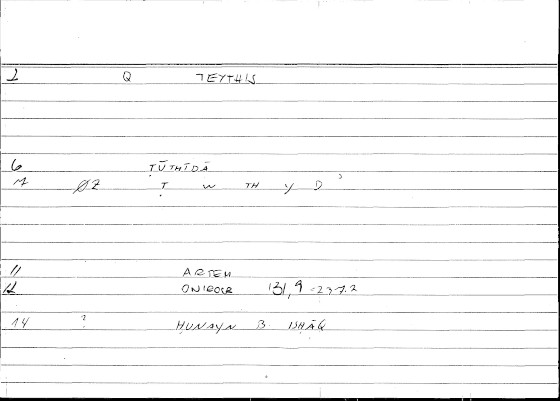 1 Q TEYTHIS
6 ṬŪTHĪDĀ
M ØZ Ṭ W TH Y D ʾ
11 ARTEM
12 ONIROCR 131,9 = 237.2
14 ? HUNAYN B. ISHĀQ